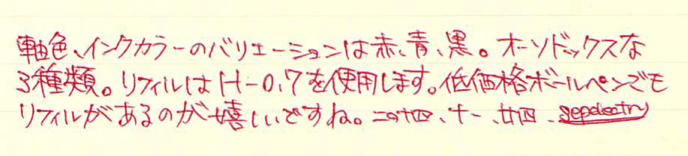 軸色、インクカラーのバリエーションは赤、青、黒。オーソドックスな
3種類。リフィルはH-0,7を使用します。低価格ボールペンでも
リフィルがあるのが嬉しいですね。二〇十四、十一、廿四、